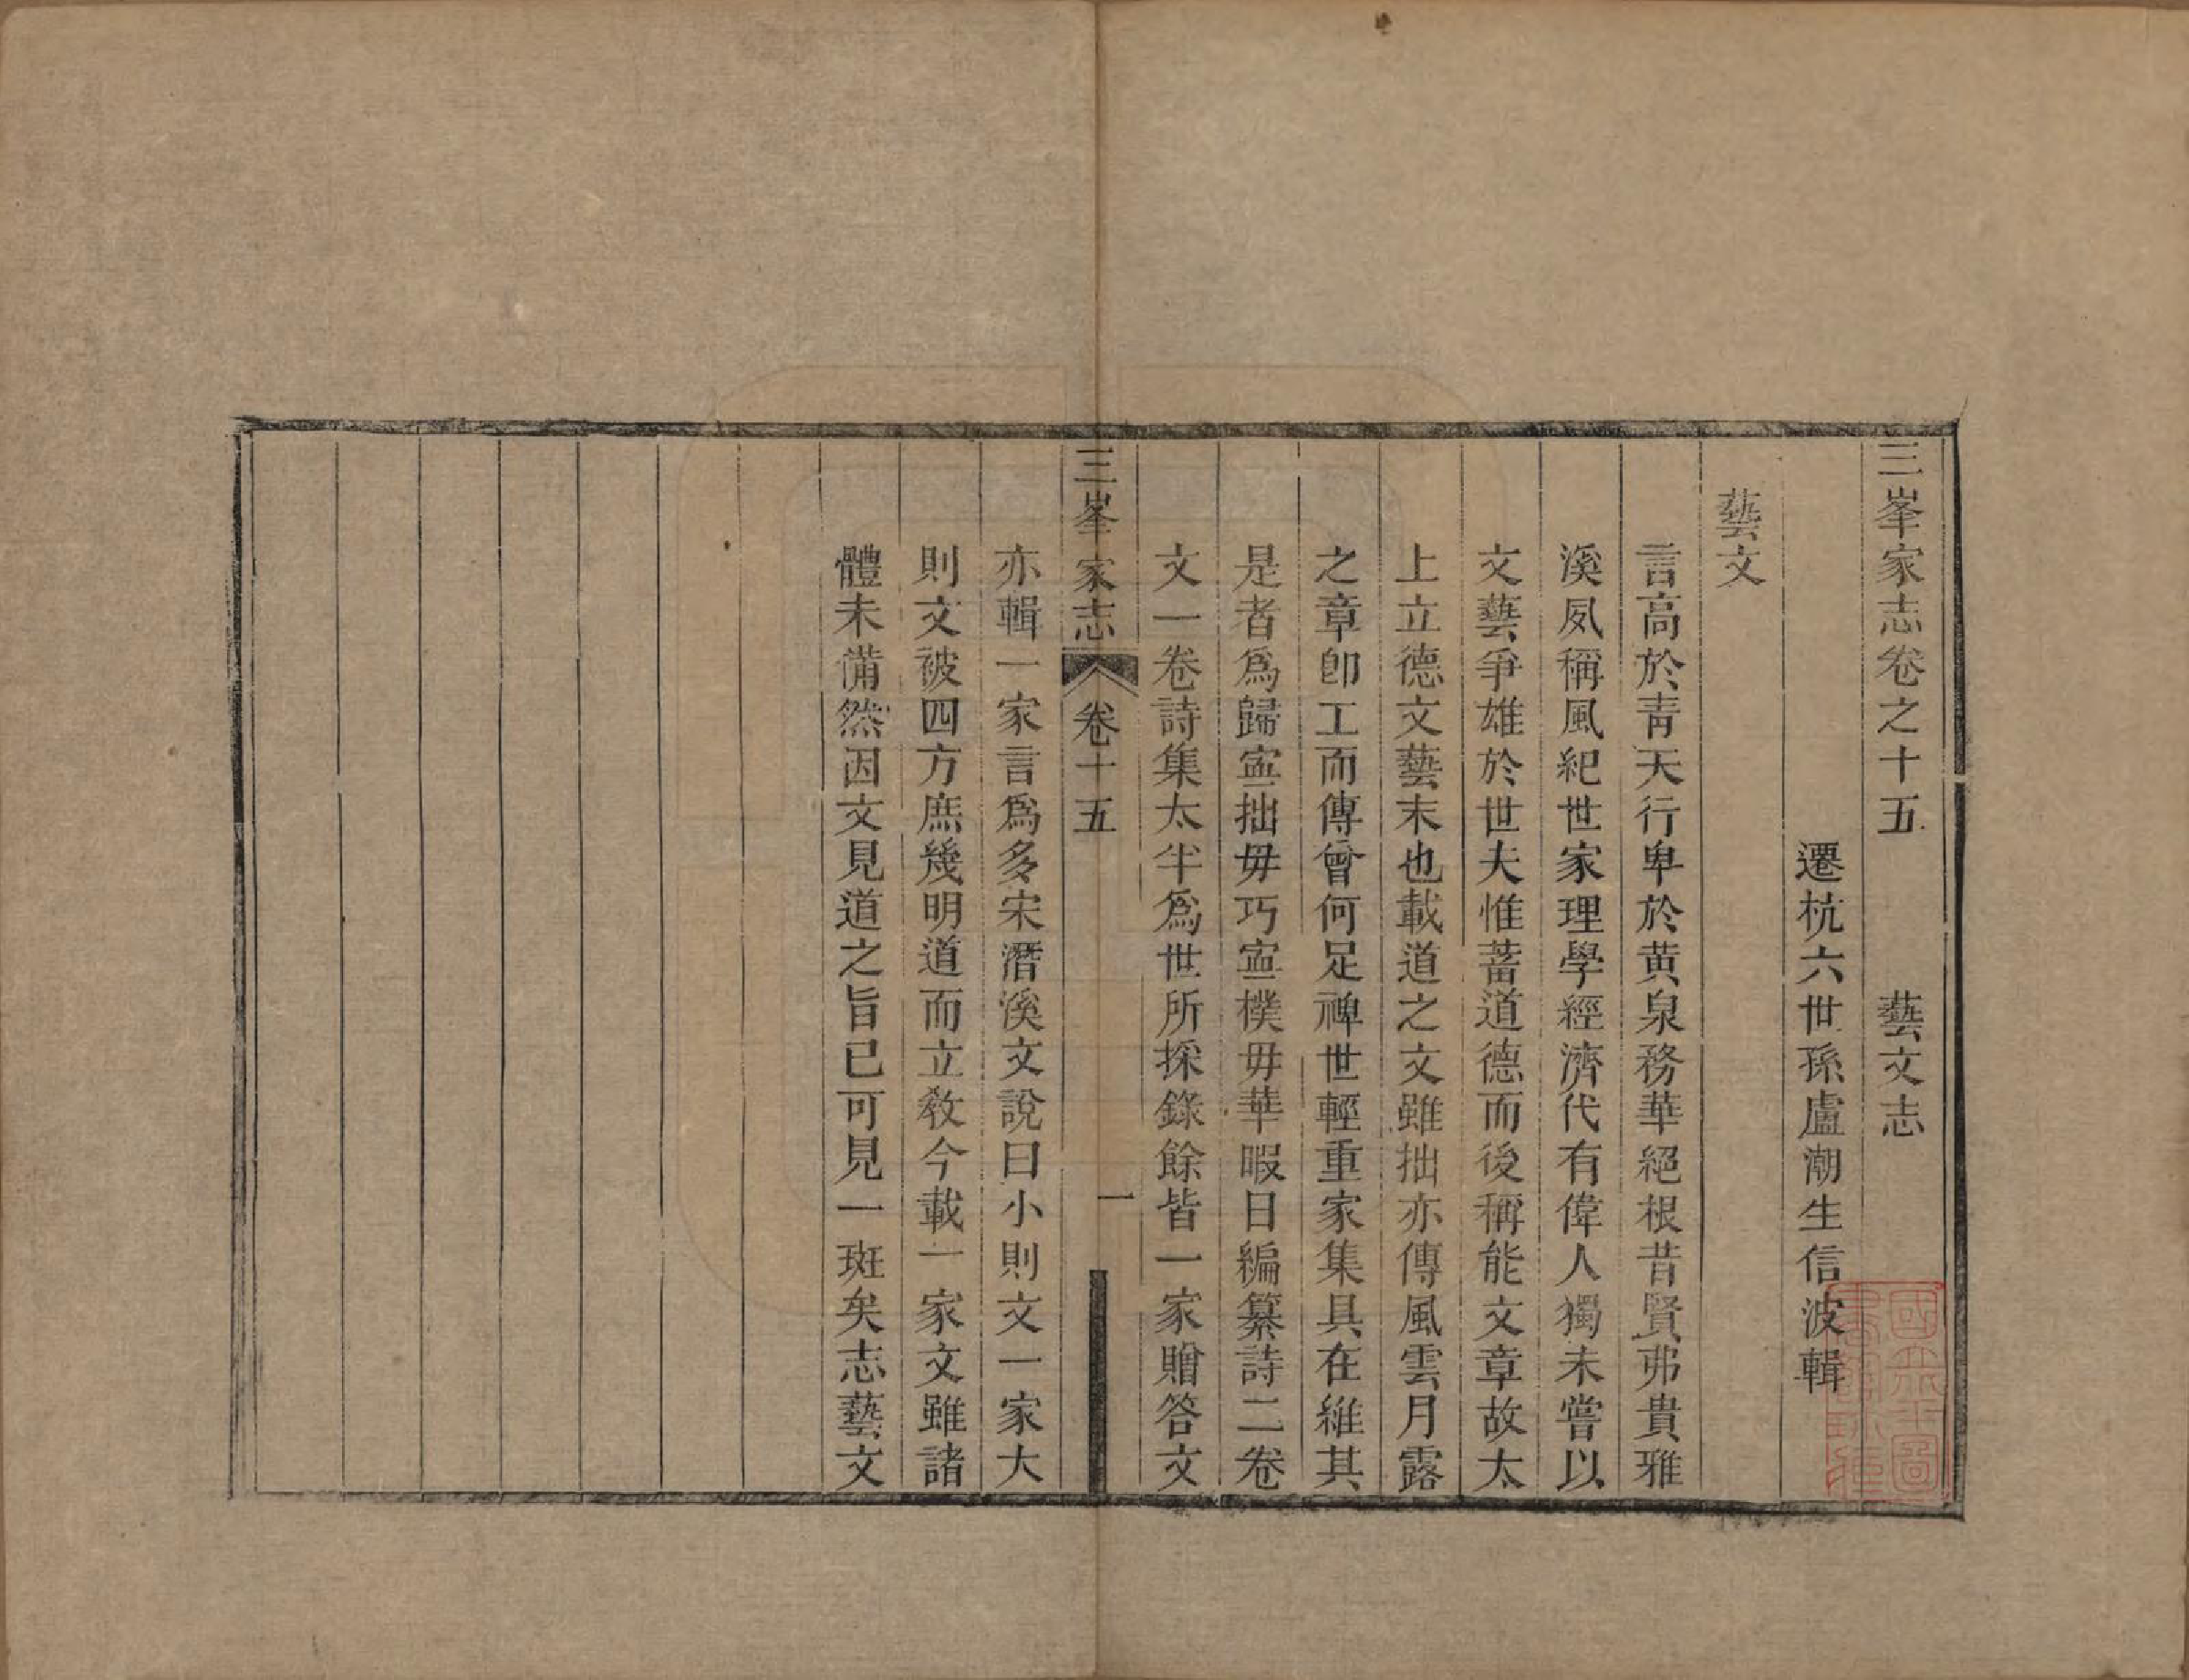 三峯家志卷之十五　藝文志
遷杭六世孫盧潮生信波輯
藝文
言高於青天行卑於黃泉務華絕根昔賢弗貴雅
溪夙稱風紀世家理學經濟代有偉人獨未嘗以
文藝爭雄於世夫惟蓄道德而後稱能文章故太
上立德文藝末也載道之文雖拙亦傳風雲月露
之章卽工而傳曾何足裨世輕重家集具在維其
是者爲歸寍拙毋巧寍樸毋華暇日編纂詩二卷
文一卷詩集太半爲世所採錄餘皆一家贈答文
三峯家志　卷十五　一
亦輯一家言爲多宋潛溪文說曰小則文一家大
則文被四方庶幾明道而立敎今載一家文雖諸
體未備然因文見道之旨已可見一斑矣志藝文